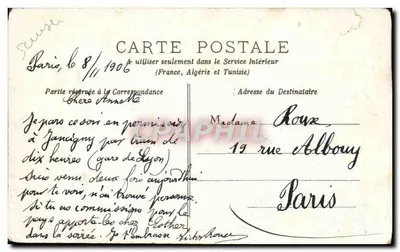 CARTE POSTALE
Paris, le 8/11 1906
A utiliser seulement dans le Service Intérieur
(France, Algérie et Tunisie)
Partie réservée à la Correspondance
Adresse du Destinataire
Chère
Je pars ce soir en permission
à Jancigny par train de
dix heures (gare de Lyon)
suis venu deux fois aujourd'hui
pour te voir, n'ai trouvé personne
si tu as commissions pour le
pays apporte les chez Esther
dans la soirée. Je t'embrasse
Madame Roux
19 rue Albouy
Paris